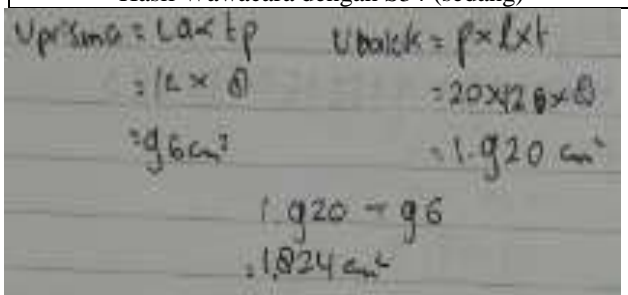 Hasil Wawacara dengan S34 (sedang)
Vprisma = La × tp
= 12 × 8
= 96 cm³
Vbalok = p×l×t
= 20×12×8
= 1.920 cm³
1.920 - 96
= 1.824 cm²